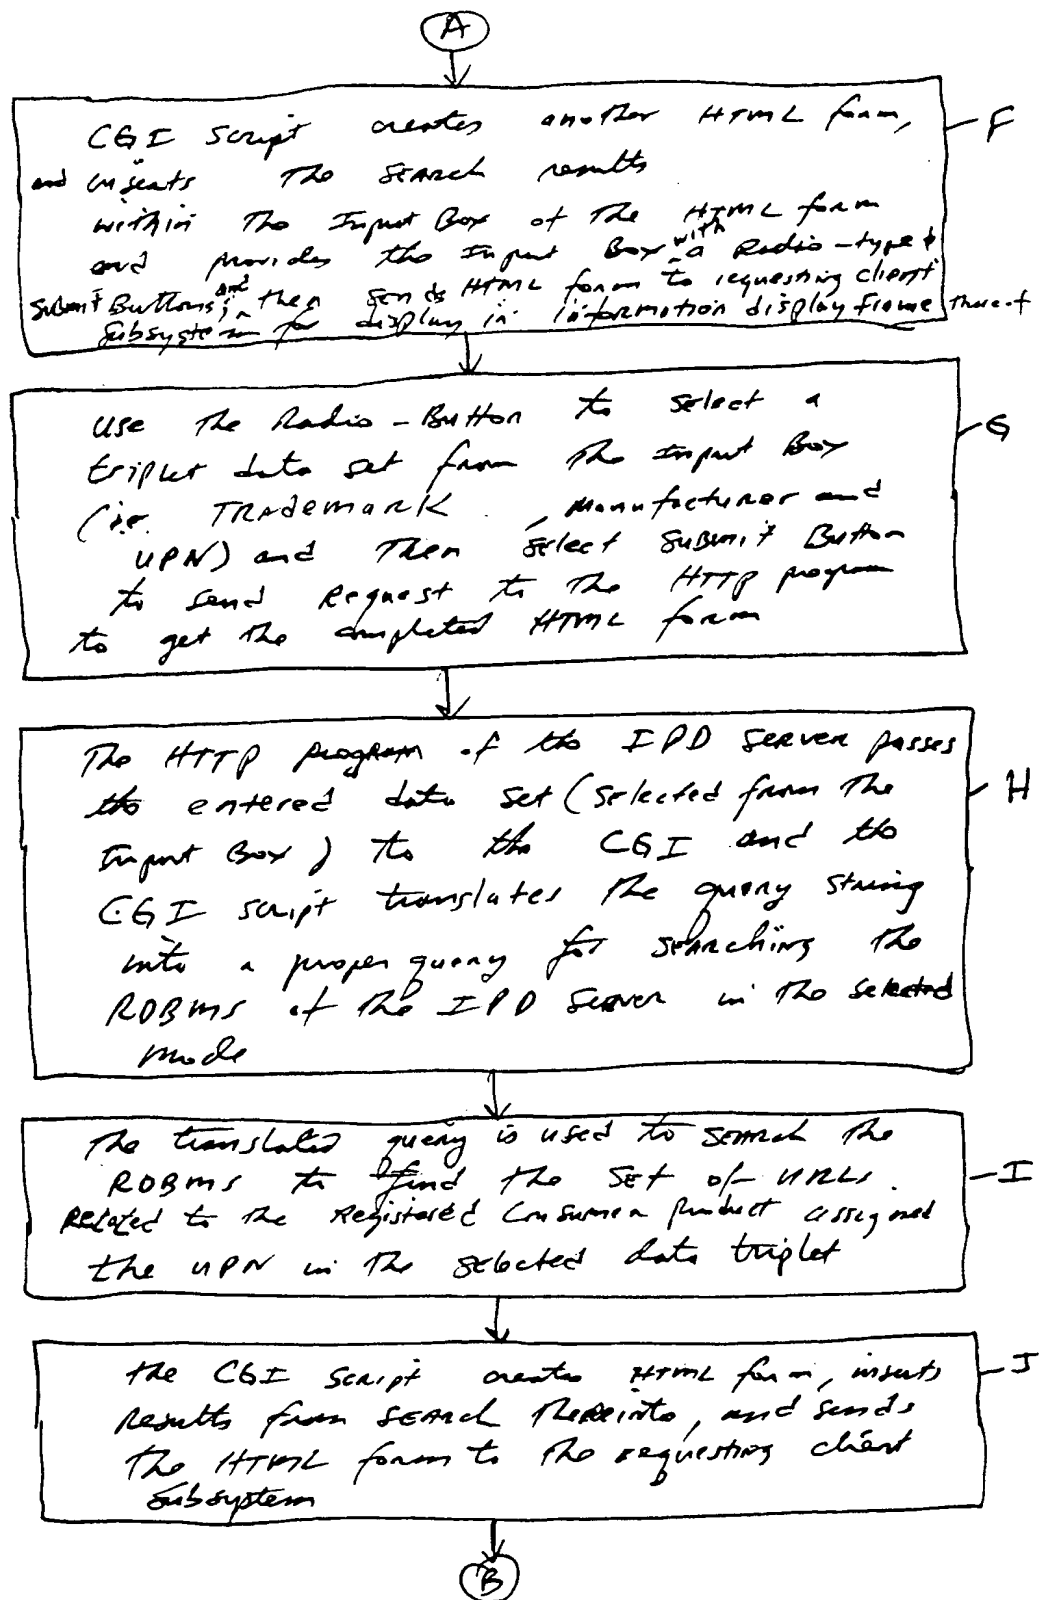 A
CGI Script creates another HTML form,
F
and inserts the SEARCH results
within the Input Box of the HTML form
and provides the Input Box with a Radio-type &
Submit Buttons; and then sends HTML form to requesting client
Subsystem for display in information display frame thereof
Use the Radio-Button to select a
G
triplet data set from the Input Box
(ie. TRADEMARK, Manufacturer and
UPN) and Then select Submit Button
to send Request to the HTTP program
to get the completed HTML form
The HTTP program of the IPD Server passes
the entered data set (selected from the
H
Input Box) to the CGI and the
CGI script translates the query string
into a proper query for searching the
RDBMS of the IPD Server in the selected
mode
The translated query is used to SEARCH the
RDBMS to find the SET of URLs
I
Related to the Registered Consumer product assigned
the UPN in the selected data triplet
the CGI Script creates HTML form, inserts
J
Results from SEARCH thereinto, and sends
the HTML form to the requesting client
subsystem
B